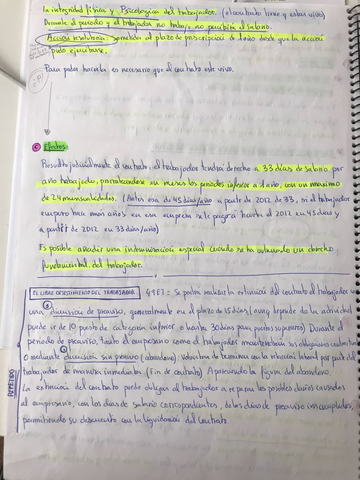 la integridad física y Psicológica del trabajador. (el contrato tiene q estar vivo)
Durante el periodo y el trabajador no trabaje, no percibirá el salario.
Acción resolutoria: sometida al plazo de prescripción de 1 año desde que la acción
pudo ejercitarse.
Para poder hacerla es necesario que el contrato este vivo.
C Efectos:
Resuelto judicialmente el contrato, el trabajador tendrá derecho a 33 días de salario, por
año trabajado, prorrateandose en meses los periodos inferior a 1 año, con un maximo
de 24 mensualidades. (Antes era de 45 días/año a partir de 2012 de 33, si el trabajador
empezo hace mas años en esa empresa se le pagará hasta el 2012 en 45 días y
a partir de 2012 en 33 días/año)
Es posible añadir una indemnización especial cuando se ha vulnerado un derecho
fundamental del trabajador.
EL LIBRE DESESTIMIENTO DEL TRABAJADOR 49ET = Se podrá realizar la extinción del contrato el trabajador
una dimisión de preaviso, generalmente en el plazo de 15 días (aunq depende de la actividad
puede ir de 10 puesto de categoría inferior o hasta 30 días para puestos superiores) Durante el
periodo de preaviso, tanto el empresario como el trabajador mantendrán sus obligaciones contractuales
O mediante dimisión sin preaviso (abandono). Voluntad de terminar con la relación laboral por parte del
trabajador de manera inmediata. (Fin de contrato) Apareciendo la figura del abandono.
La extinción del contrato puede obligar al trabajador a reparar los posibles daños causados
al empresario, con los días de salario correspondientes, de los días de preaviso incumplidos,
permitiendo su descuento con la liquidación del contrato.
REPETIDO